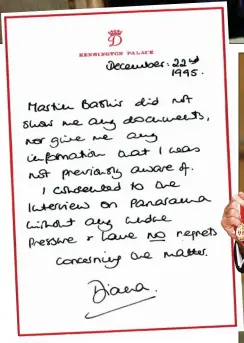 D
KENSINGTON PALACE
December: 22nd
1995.
Martin Bashir did not
show me any documents,
nor give me any
information that I was
not previously aware of.
I consented to the
interview on Panorama
without any undue
pressure & have no regrets
concerning the matter.
Diana.